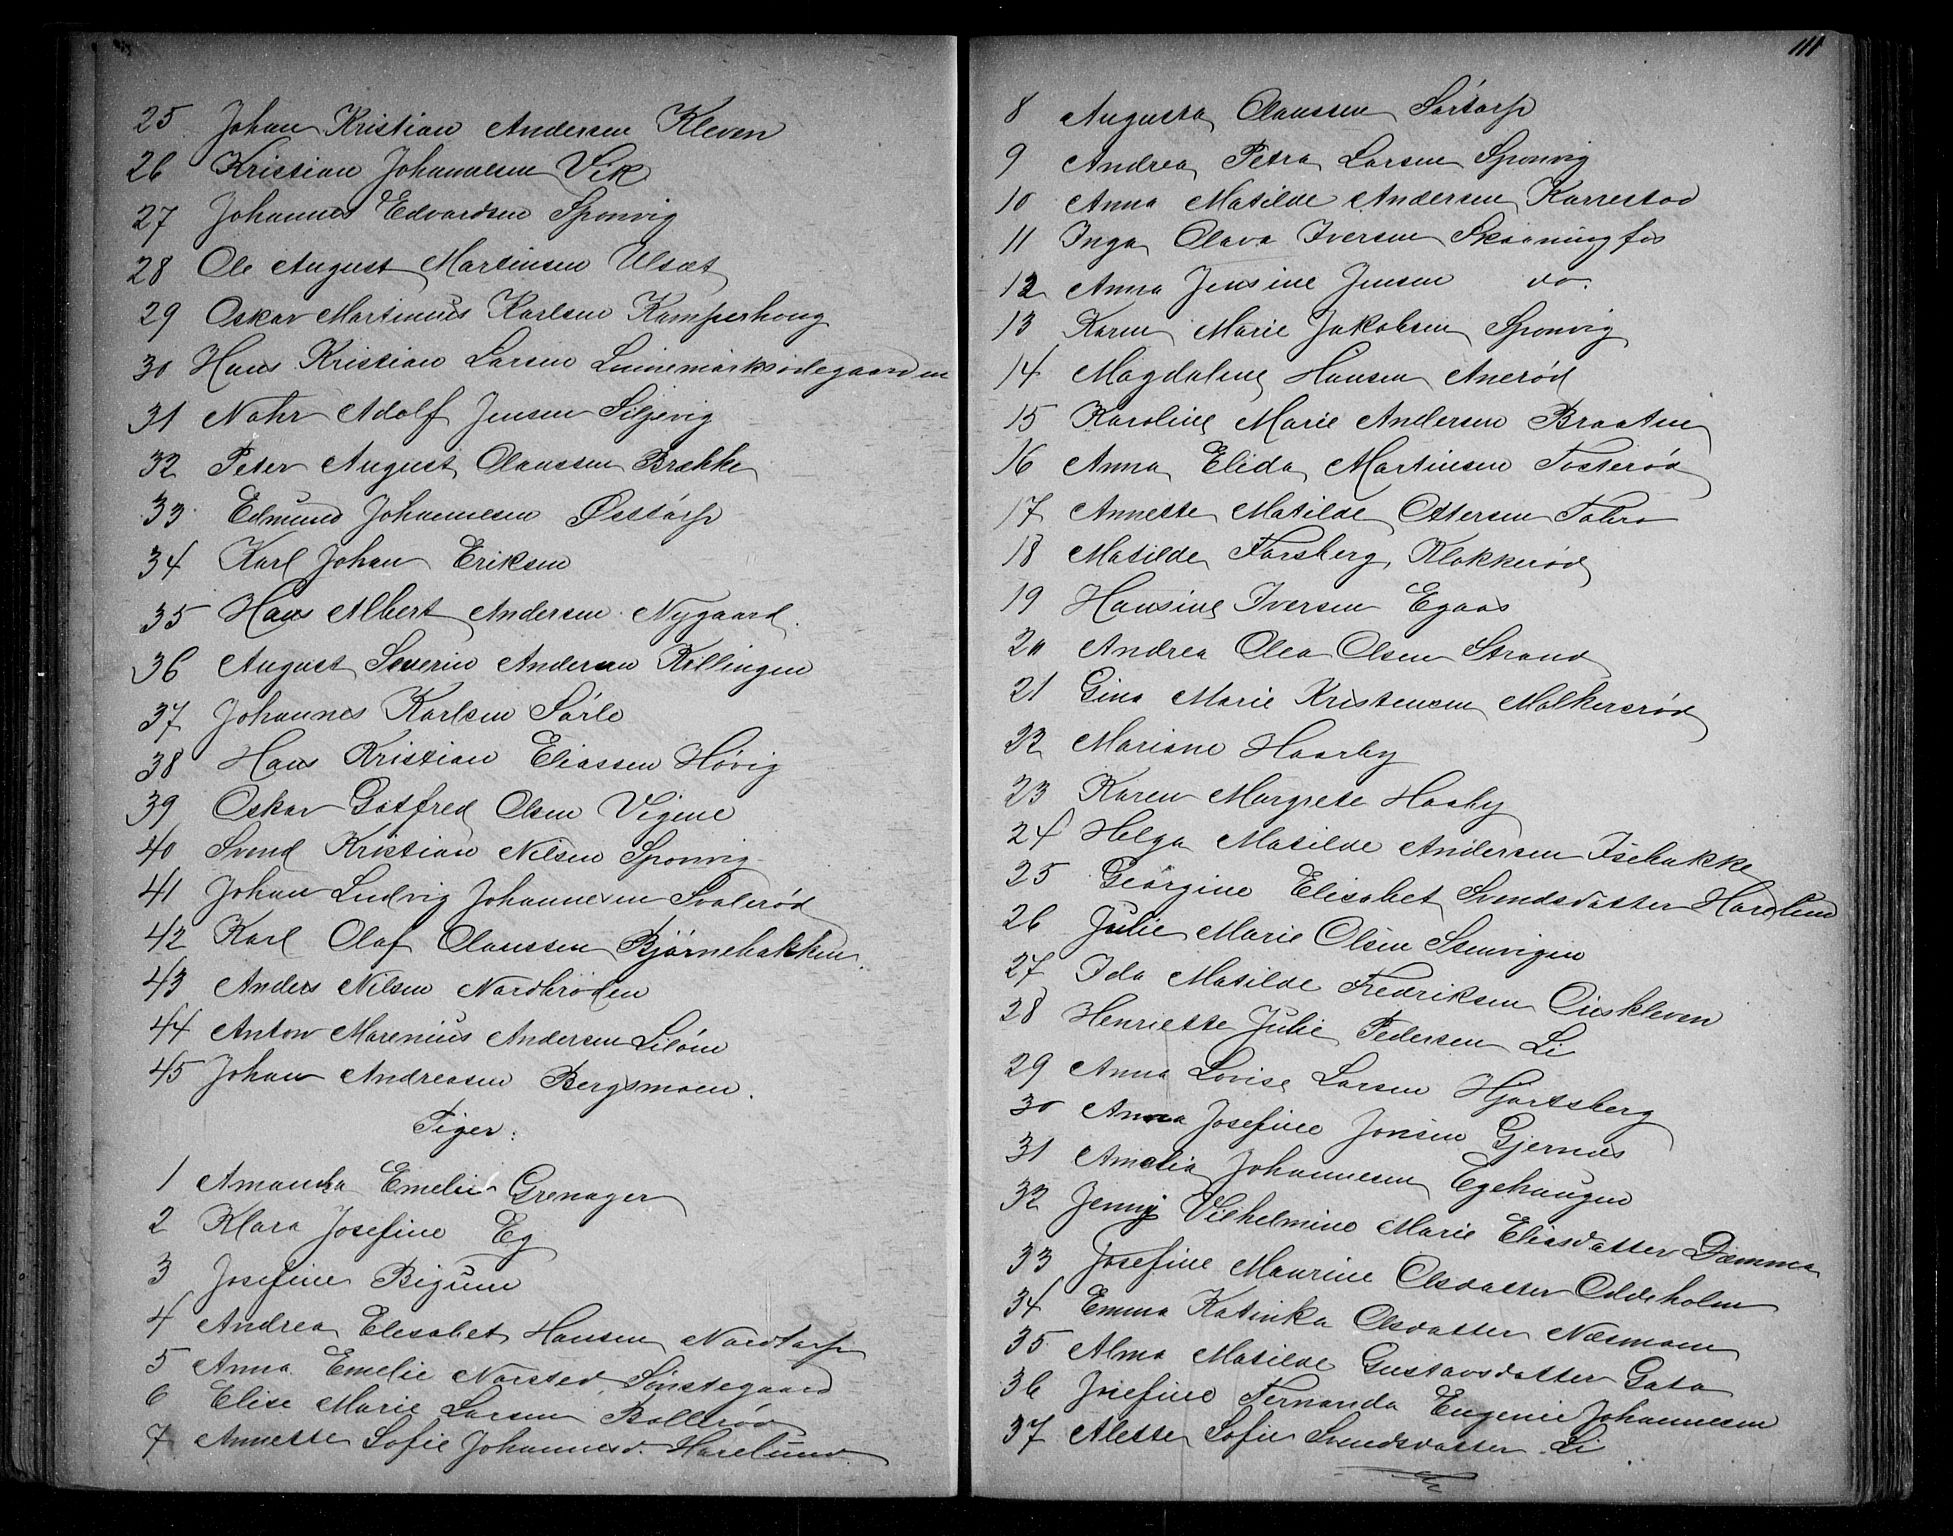 25 Johan Kristian Andersen Kleven
26 Kristian Johannesen Vik
27 Johannes Edvardsen Sponvig
28 Ole August Martinsen Ulsæt
29 Oskar Martinius Karlsen Kamperhoug
30 Hans Kristian Larsen Linnemarksødegaarden
31 Nohr Adolf Jensen Siljevig
32 Peter August Olaussen Brække
33 Edmund Johannesen Østtorp
34 Karl Johan Eriksen
35 Hans Albert Andersen Nygaard.
36 August Severin Andersen Killingen
37 Johannes Karlsen Sørle
38 Hans Kristian Eliassen Høvig
39 Oskar Gotfred Olsen Vigene
40 Svend Kristian Nilsen Sponvig
41 Johan Ludvig Johannesen Svalerød
42 Karl Olaf Olaussen Bjørnebakken.
43 Anders Nilsen Nordbrøden
44 Anton Marenius Andersen Liløen
45 Johan Andreasen Bergsmoen.
Piger:
1 Amanda Emelie Grenager
2 Klara Josefine Eg
3 Josefine Bigum
4 Andrea Elisabet Hansen Nordtorp
5 Anna Emelie Norsted, Sønstegaard
6 Elise Marie Larsen Bollerød
7 Annette Sofie Johannesd. Harelund.
111
8 Augusta Olaussen Sørtorp
9 Andrea Petra Larsen Sponvig
10 Anna Matilde Andersen Karrestad
11 Inga Olava Iversen Skaaningfos
12 Anna Jensine Jensen do.
13 Karen Marie Jakobsen Sponvig
14 Magdaline Hansen Anerød
15 Karoline Marie Andersen Braaten
16 Anna Elida Martinsen Fosterød
17 Annette Matilde Ottersen Fabro
18 Matilde Forsberg, Klokkerød
19 Hansine Iversen Egaas
20 Andrea Olea Olsen Strand
21 Gina Marie Kristensen Molkersrød
22 Mariane Haaby
23 Karen Margrete Haaby
24 Helga Matilde Andersen Isebakke
25 Georgine Elisabet Svendsdatter Harelund
26 Julie Marie Olsen Stenvigen
27 Ida Matilde Fredriksen Ouskleven
28 Henriette Julie Pedersen Li
29 Anna Lovise Larsen Hjortsberg
30 Anna Josefine Jonsen Gjernes
31 Amalia Johannesen Egehaugen
32 Jenny Vilhelmine Marie Eliasdatter Damma
33 Josefine Maurine Olsdatter Oldeholm
34 Emma Katinka Olsdatter Næsmoen
35 Alma Matilde Gustavsdatter Gata
36 Josefine Fernanda Eugenie Johannesen
37 Alette Sofie Svendsdatter Li